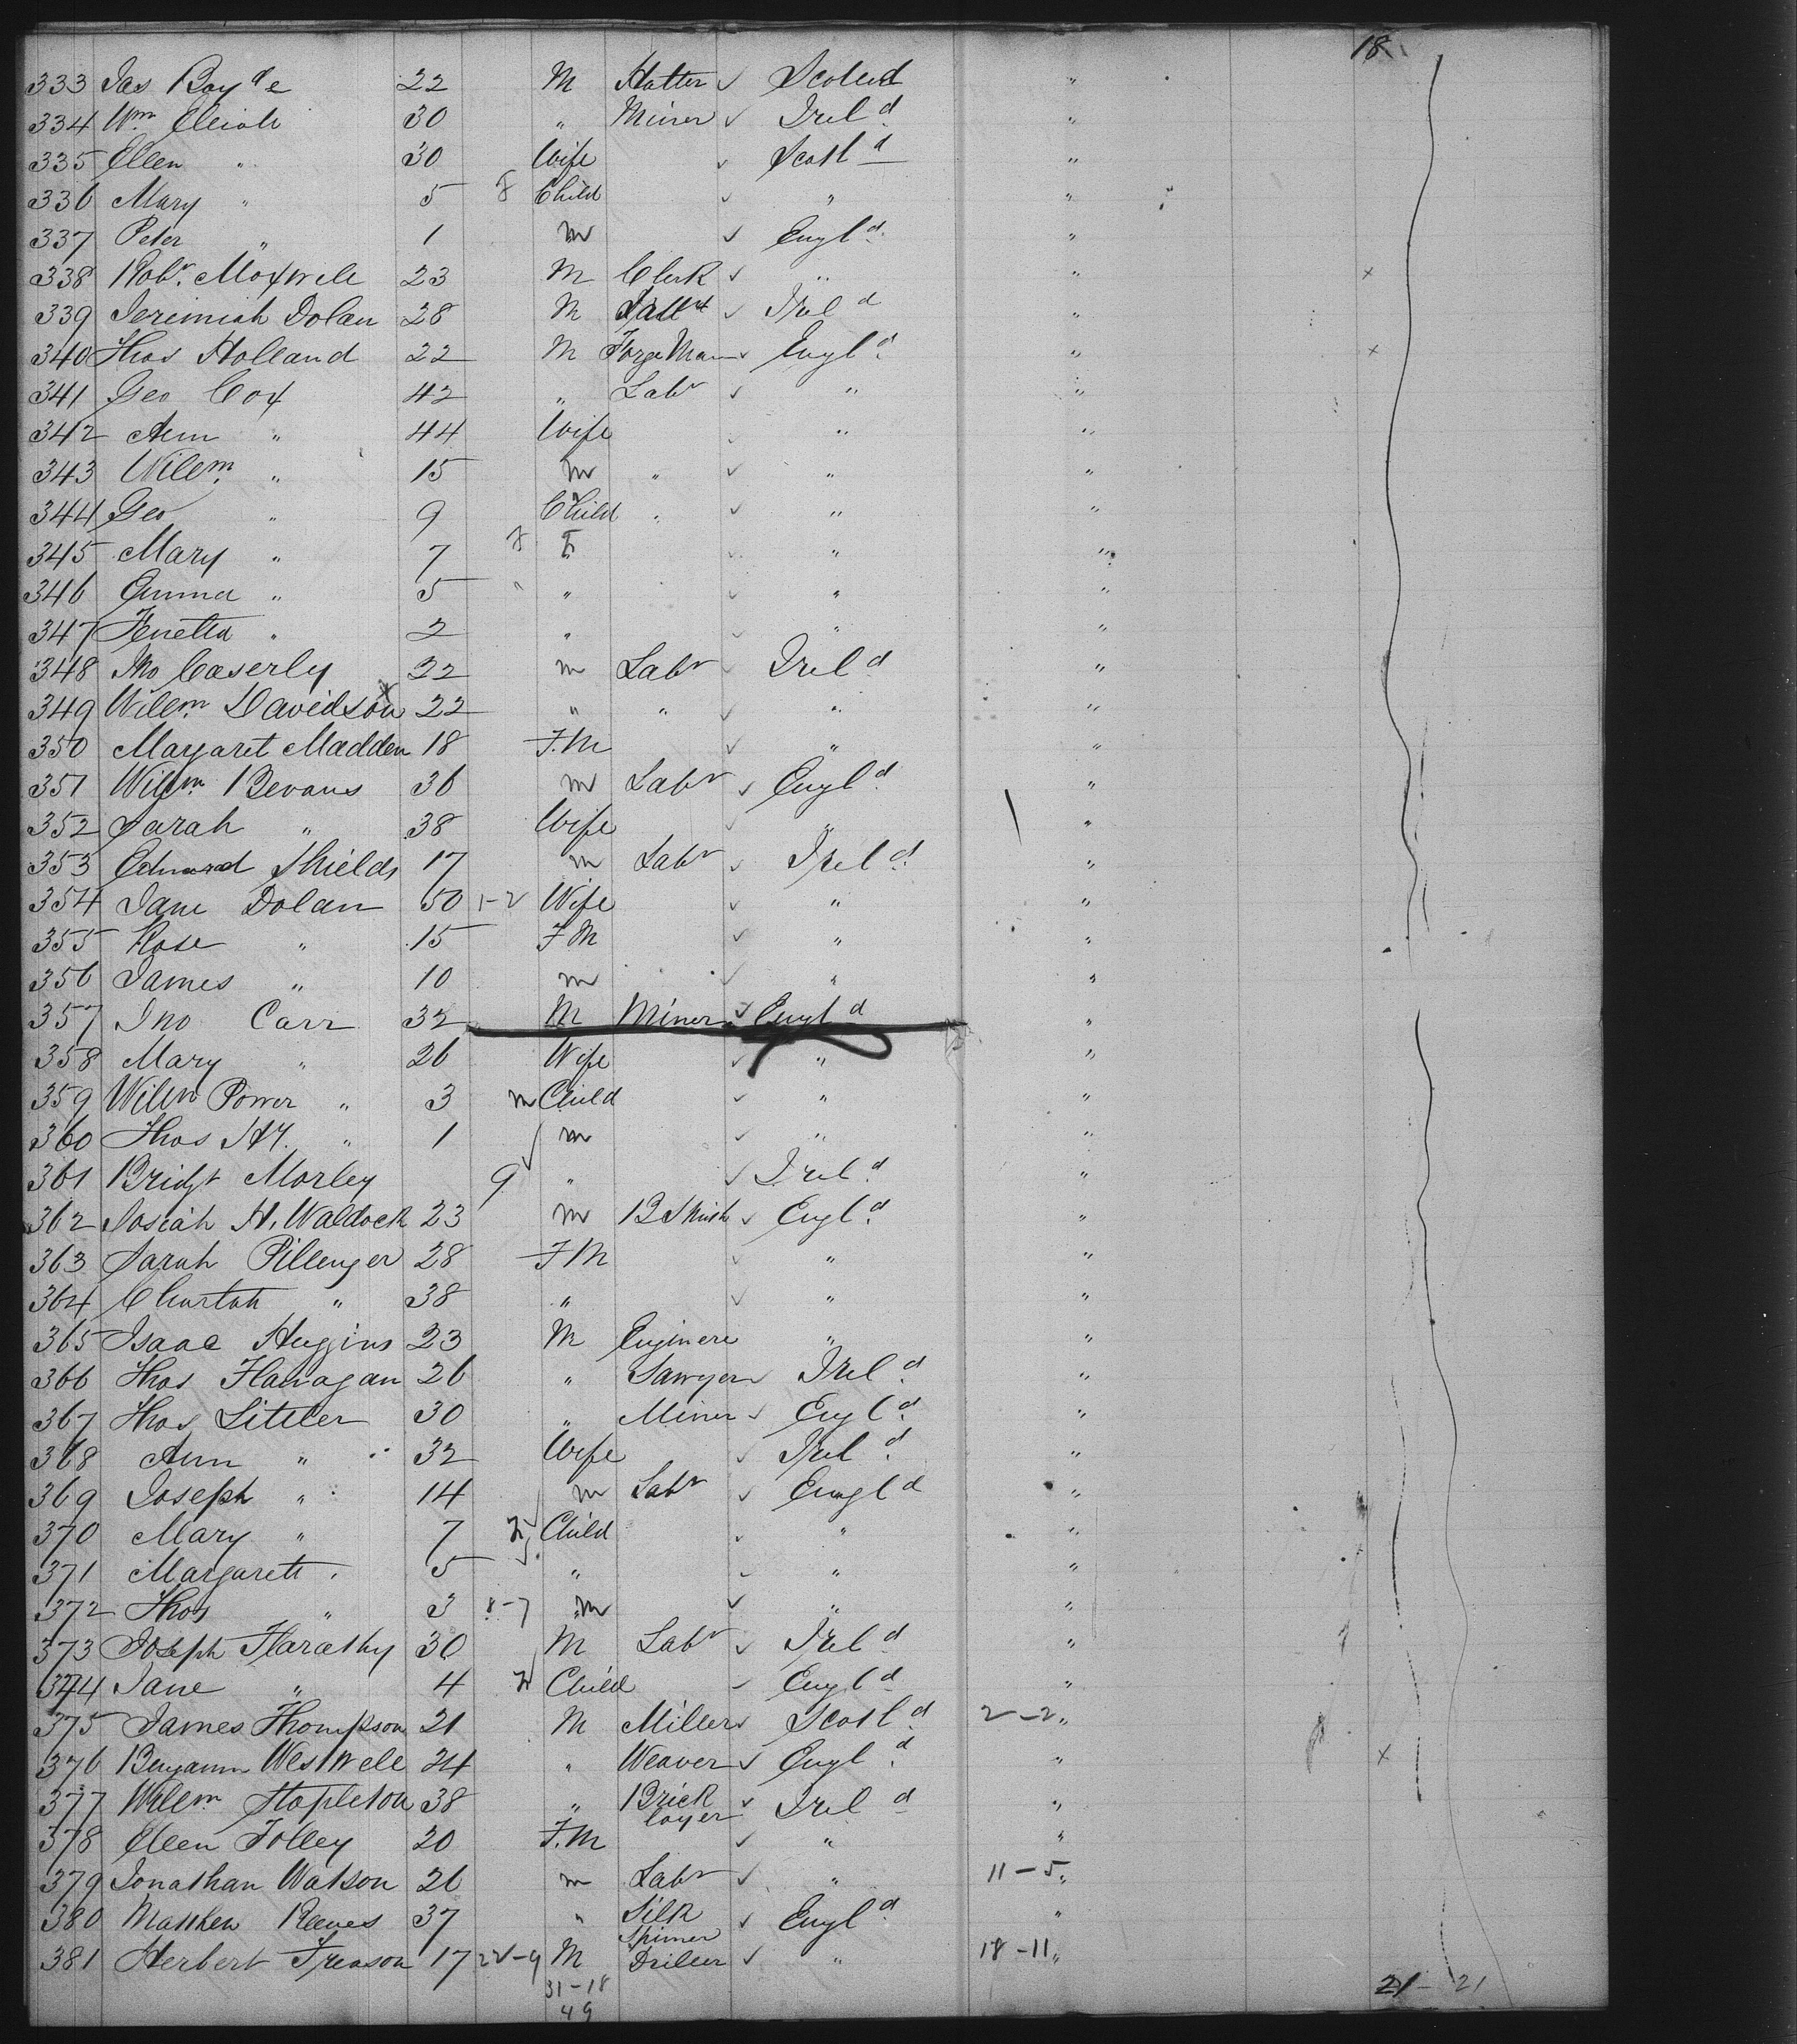 18
333 Jas Boyde 22 M Hatter ✓ Scotld "
334 Wm. 30 " Miner ✓ Ireld "
335 Ellen " 30 Wife ✓ Scotld "
336 Mary " 5 F Child ✓ " "
337 Peter " 1 m ✓ Engld "
338 Robt. Moxwell 23 M Clerk ✓ " " x
339 Jerimiah Dolan 28 M ✓ Ireld "
340 Thos Holland 22 M Forge Man ✓ Engld " x
341 Geo Cox 42 " Labr ✓ " "
342 Ann " 44 Wife ✓ " "
343 Willm. " 15 m " ✓ " "
344 Geo " 9 Child " ✓ " "
345 Mary " 7 F ✓ " "
346 Emma " 5 " " ✓ " "
347 Fenetta " 2 " ✓ " "
348 Jno Caserly 22 m Labr ✓ Ireld "
349 Willm. Davidson 22 " " ✓ " "
350 Margaret Madden 18 F.M ✓ " "
351 Willm Bevans 36 m Labr ✓ Engld "
352 Sarah " 38 Wife ✓ " "
353 Edward Shields 17 m Labr ✓ Ireld "
354 Jane Dolan 50 1-2 Wife ✓ " "
355 Rose " 15 F M ✓ " "
356 James " 10 m ✓ " "
357 Jno Carr 32 M Miner ✓ Engld "
358 Mary " 26 Wife ✓ " "
359 Willm Power " 3 m Child ✓ " "
360 Thos Hy. " 1 m ✓ " "
361 Bridgt Morley 9 " ✓ Ireld "
362 Josiah H. Waldock 23 m B Smith ✓ Engld "
363 Sarah Pillenger 28 F M ✓ " "
364 " 38 " ✓ " "
365 Isaac Huggins 23 M Enginere " "
366 Thos Flanagan 26 " Sawyer ✓ Ireld "
367 Thos Litiler 30 " Miner ✓ Engld "
368 Ann " 32 Wife ✓ Ireld "
369 Joseph " 14 m Labr ✓ Engld "
370 Mary " 7 Child ✓ " "
371 Margarett " 5 " ✓ " "
372 Thos " 3 8-7 m ✓ " "
373 Joseph Harathy 30 M Labr ✓ Ireld "
374 Jane " 4 Child ✓ Engld "
375 James Thompson 21 M Miller ✓ Scotld 2-2 "
376 Benjamin Westwell 24 " Weaver ✓ Engld " x
377 Willm Stapleton 38 " Brick layer ✓ Ireld "
378 Ellen Folley 20 F.M ✓ " "
379 Jonathan Watson 26 m Labr ✓ " 11-5 "
380 Matthew Reeves 37 " Silk Spiner ✓ Engld "
381 Herbert 17 22-9 M Driller ✓ " 18-11 "
31-18
49
21-21